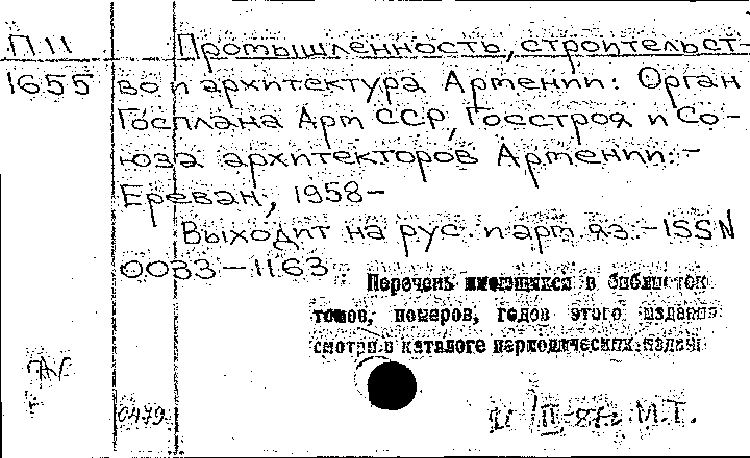 П11 Промышленность, строительст-
1655 во и архитектура Армении: Орган
Госплана Арм ССР, Госстроя и Со-
юза архитекторов Армении. -
Ереван, 1958-
Выходит на рус. и арм. яз. - ISSN
0033-1163.
Перечень имеющихся в библиотек
томов, номеров, годов этого издания
смотри в каталоге периодических издан
0479 II-87г. М.Т.